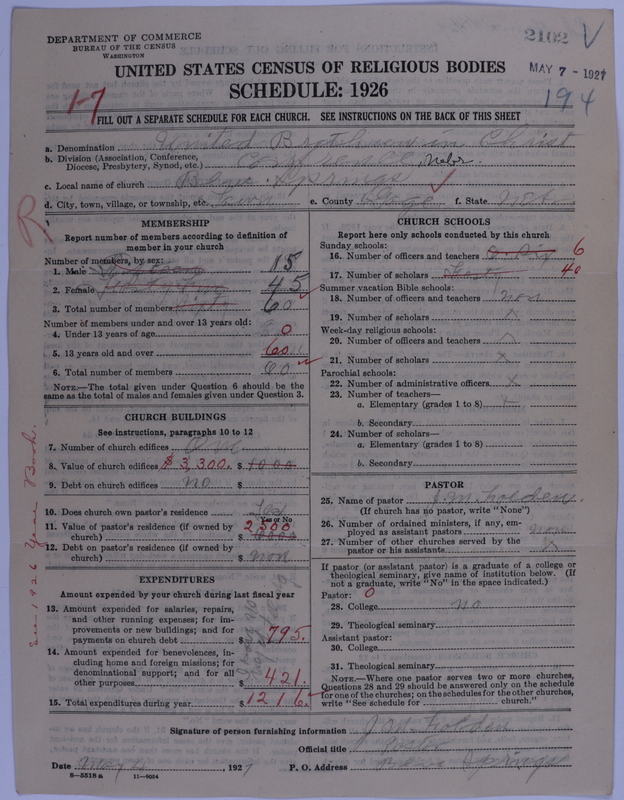 DEPARTMENT OF COMMERCE
BUREAU OF THE CENSUS
WASHINGTON
2102 V
UNITED STATES CENSUS OF RELIGIOUS BODIES
MAY 7 - 1927
SCHEDULE: 1926
1-7
194
FILL OUT A SEPARATE SCHEDULE FOR EACH CHURCH. SEE INSTRUCTIONS ON THE BACK OF THIS SHEET
a. Denomination United Brethren in Christ
b. Division (Association, Conference,
Diocese, Presbytery, Synod, etc.) Conference, Nebr.
c. Local name of church Blue Springs
d. City, town, village, or township, etc. Town e. County Gage f. State Neb.
R
MEMBERSHIP
Report number of members according to definition of
member in your church
Number of members, by sex:
1. Male 15
2. Female 45
3. Total number of members 60
Number of members under and over 13 years old:
4. Under 13 years of age 0
5. 13 years old and over 60
6. Total number of members 60
NOTE.—The total given under Question 6 should be
same as the total of males and females given under Question 3.
CHURCH BUILDINGS
See instructions, paragraphs 10 to 12
7. Number of church edifices One
8. Value of church edifices $3,300. $
9. Debt on church edifices no $
10. Does church own pastor's residence Yes
Yes or No
11. Value of pastor's residence (if owned by
church) $ 2500
12. Debt on pastor's residence (if owned by
church) $ none
See 1926 Year Book.
EXPENDITURES
Amount expended by your church during last fiscal year
13. Amount expended for salaries, repairs,
and other running expenses; for im-
provements or new buildings; and for
payments on church debt $ 795.
14. Amount expended for benevolences, in-
cluding home and foreign missions; for
denominational support; and for all
other purposes $ 421.
15. Total expenditures during year $ 1216.
CHURCH SCHOOLS
Report here only schools conducted by this church
Sunday schools:
16. Number of officers and teachers 6
17. Number of scholars 40
Summer vacation Bible schools:
18. Number of officers and teachers non
19. Number of scholars x
Week-day religious schools:
20. Number of officers and teachers
21. Number of scholars x
Parochial schools:
22. Number of administrative officers x
23. Number of teachers—
a. Elementary (grades 1 to 8)
b. Secondary
24. Number of scholars—
a. Elementary (grades 1 to 8)
b. Secondary
PASTOR
25. Name of pastor
(If church has no pastor, write "None")
26. Number of ordained ministers, if any, em-
ployed as assistant pastors none
27. Number of other churches served by the
pastor or his assistants x
If pastor (or assistant pastor) is a graduate of a college or
theological seminary, give name of institution below. (If
not a graduate, write "No" in the space indicated.)
Pastor: 0
28. College no
29. Theological seminary
Assistant pastor:
30. College
31. Theological seminary
NOTE.—Where one pastor serves two or more churches,
Questions 28 and 29 should be answered only on the schedule
for one of the churches; on the schedules for the other churches,
write "See schedule for church."
Signature of person furnishing information
Official title
Date May 2, 1927 P. O. Address Blue Springs
8—5518 a 11—9034